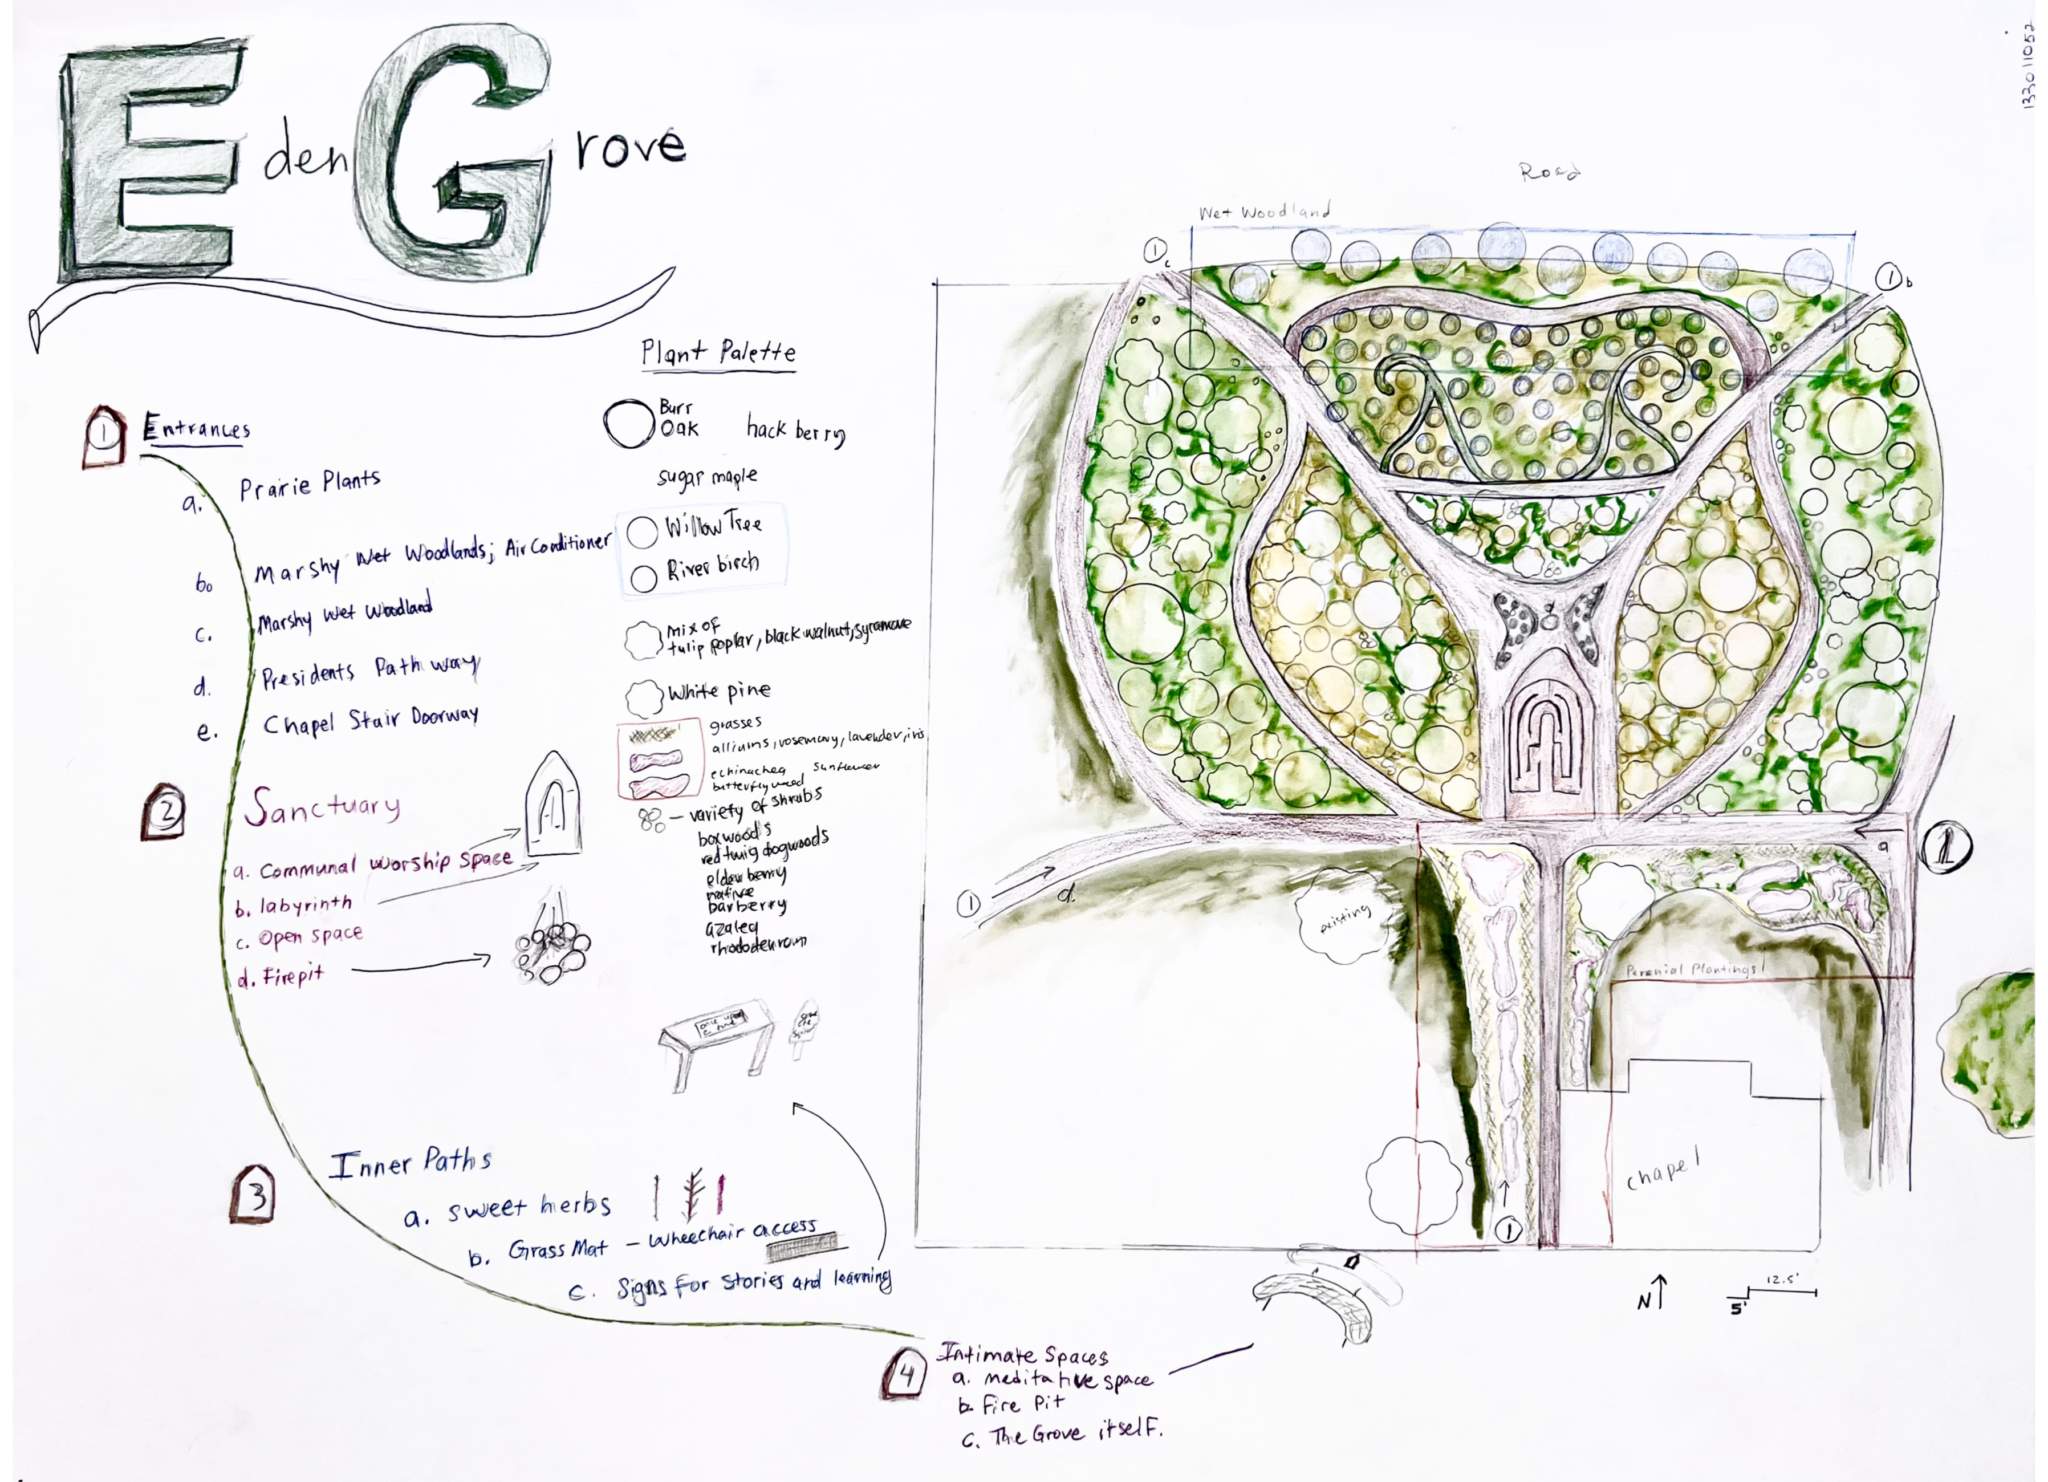 Eden Grove
133011052
Plant Palette
Burr
Oak
hack berry
sugar maple
Willow Tree
River birch
mix of
tulip poplar, black walnut, sycamore
White pine
grasses
alliums, rosemary, lavender, iris
echinachea sunflower
butterflyweed
- variety of shrubs
boxwoods
red twig dogwoods
elder berry
native
barberry
azalea
1 Entrances
a. Prairie Plants
b. Marshy Wet Woodlands; Air Conditioner
c. Marshy Wet Woodland
d. Presidents Pathway
e. Chapel Stair Doorway
2 Sanctuary
a. Communal worship space
b. labyrinth
c. Open space
d. Firepit
once upon
a time
3 Inner Paths
a. sweet herbs
b. Grass Mat - Wheechair access
c. Signs For Stories and learning
4 Intimate Spaces
a. meditative space
b. Fire Pit
c. The Grove itself.
Road
Wet Woodland
1 c
1 b
1 d.
a 1
existing
Perenial Plantings
chapel
1
N
5'
12.5'